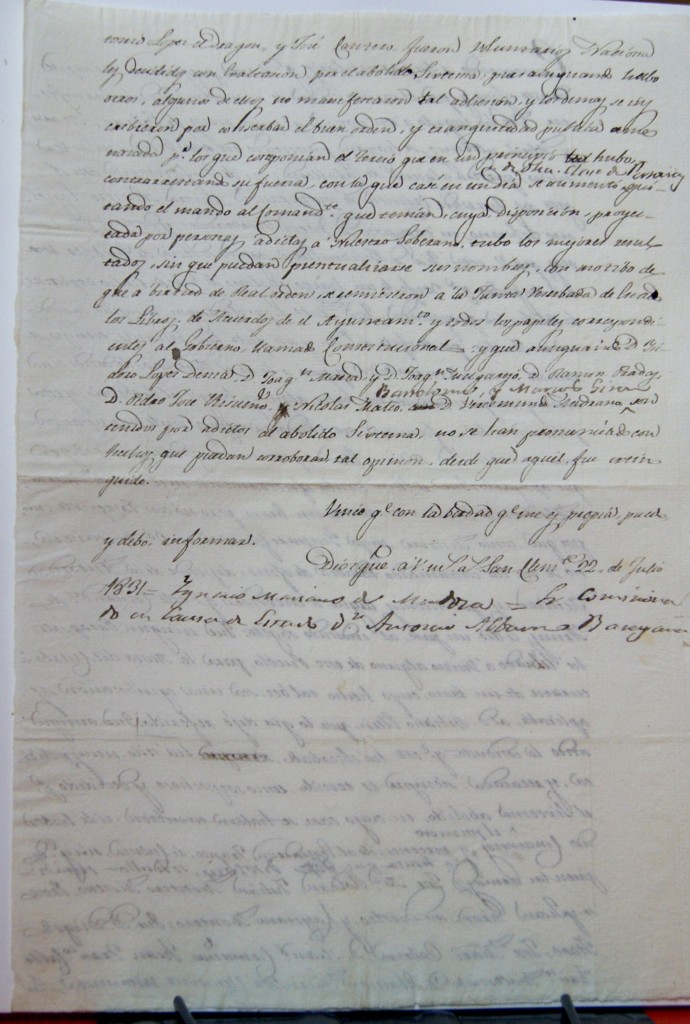 como Lopez el Dragon, y José Carrera fueron Voluntarios Naciona
les decididos con exaltacion por el abolido Sistema, pues aunque hubo
otros, algunos de ellos no manifestaron tal adhesion, y los demas se ins
cribieron por conserbar el buen orden, y tranquilidad publica ame
nazada pr. los que componian el tercio que en un principio hubo,
contrarrestando su fuerza, con la que casi en un dia se aumentó, qui
tando el mando al Comandte. que tenian, cuya disposicion, proyec
tada por personas adictas a Nuestro Soberano, tubo los mejores resul
tados, sin que puedan puntualizarse sus nombres, con motibo de
que a birtud de Real orden, se remitieron á la Junta Reserbada de Estado
los Libros de Acuerdos de el Ayuntamto. y todos los papeles correspondi
entes al Gobierno llamado Constitucional: y que aunque D. Isi
doro Lopez D. Joaqn. y D. Joaqn. Melgarejo, D. Ramon
Bartolomé, y Marcos
D. Pedro José Risueño, y Nicolas Mateo, D. son
tenidos por adictos al abolido Sistema, no se han pronunciado con
hechos que puedan corroborar tal opinion, desde que aquel fue extin
guido.
Unico qe. con la berdad qe. me es propia, puedo
y debo informar.
Dios gue. a V. ms. as. San Clemte. 22 de Julio
1831= Ygnacio Mariano de Mendoza = Sr. Comisiona
do en causa de Estado Dn. Antonio